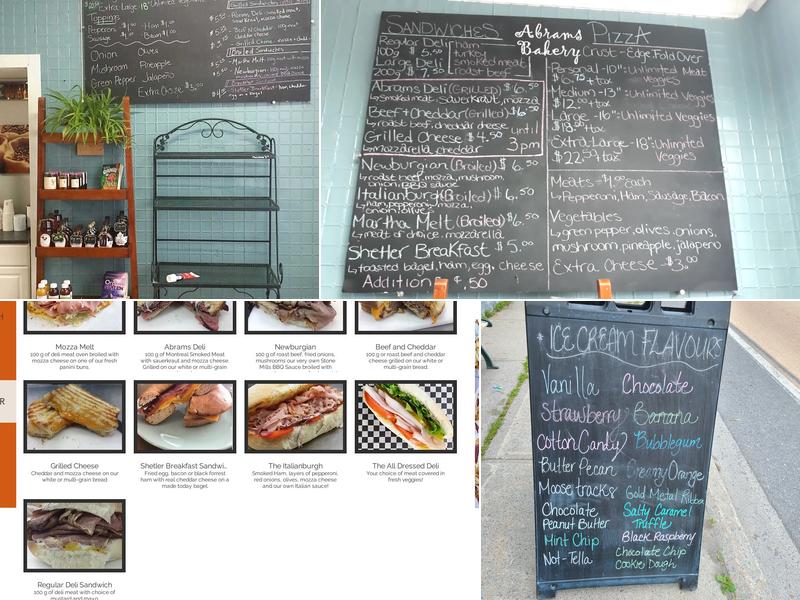 Toppings
Pepperoni
Sausage
Ham
Bacon
Onion Olives
Mushroom Pineapple
Green Pepper Jalapeño
Extra Cheese
SANDWICHES
Regular Deli
100g $5.50
Large Deli
200g $7.50
ham
turkey
smoked meat
roast beef
Abrams Deli (GRILLED) $6.50
↳ smoked meat, sauerkraut, mozza
Beef & Cheddar (Grilled) $6.50
↳ roast beef, cheddar cheese
Grilled Cheese $4.50
↳ mozzarella, cheddar
until
3pm
Newburgian (Broiled) $6.50
↳ roast beef, mozza, mushroom,
onion, BBQ sauce
Italianburg (Broiled) $6.50
↳ ham, pepperoni, mozza,
onion, olives
Martha Melt (Broiled) $6.50
↳ meat of choice, mozzarella
Shetler Breakfast $5.00
↳ toasted bagel, ham, egg, cheese
Addition
Abrams
Bakery
PIZZA
Crust - Edge, Fold Over
Personal - 10": Unlimited Meat
$6.75 + tax Veggies
Medium - 13": Unlimited Veggies
$12.00 + tax
Large - 16": Unlimited Veggies
+ tax
Extra-Large - 18": Unlimited
$22.50 + tax Veggies
Meats - $1.00 each
↳ Pepperoni, Ham, Sausage, Bacon
Vegetables
↳ green pepper, olives, onions,
mushroom, pineapple, jalapeno
Extra Cheese - $3.00
Mozza Melt
100 g of deli meat oven broiled with
mozza cheese on one of our fresh
panini buns.
Abrams Deli
100 g of Montreal Smoked Meat
with sauerkraut and mozza cheese.
Grilled on our white or multi-grain
Newburgian
100 g of roast beef, fried onions,
mushrooms our very own Stone
Mills BBQ Sauce broiled with
Beef and Cheddar
100 g or roast beef and cheddar
cheese grilled on our white or
multi-grain bread.
Grilled Cheese
Cheddar and mozza cheese on our
white or multi-grain bread
Shetler Breakfast Sandwi...
Fried egg, bacon or black forrest
ham with real cheddar cheese on a
made today bagel.
The Italianburgh
Smoked Ham, layers of pepperoni,
red onions, olives, mozza cheese
and our own Italian sauce!
The All Dressed Deli
Your choice of meat covered in
fresh veggies!
Regular Deli Sandwich
100 g of deli meat with choice of
mustard and mayo
* ICE CREAM FLAVOURS
Vanilla Chocolate
Strawberry Banana
Cotton Candy Bubblegum
Butter Pecan Creamy Orange
Moose tracks Gold Metal Ribbon
Chocolate Peanut Butter Salty Caramel Truffle
Mint Chip Black Raspberry
Not-Tella Chocolate Chip Cookie Dough